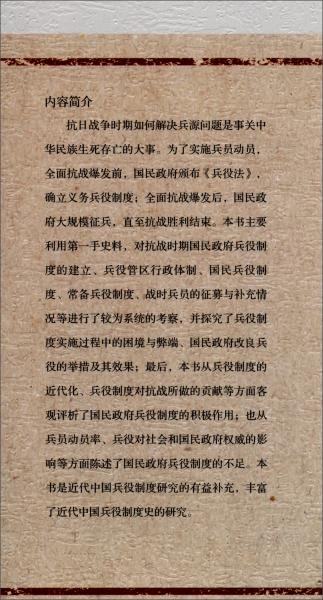 内容简介
抗日战争时期如何解决兵源问题是事关中
华民族生死存亡的大事。为了实施兵员动员，
全面抗战爆发前，国民政府颁布《兵役法》，
确立义务兵役制度；全面抗战爆发后，国民政
府大规模征兵，直至抗战胜利结束。本书主要
利用第一手史料，对抗战时期国民政府兵役制
度的建立、兵役管区行政体制、国民兵役制
度、常备兵役制度、战时兵员的征募与补充情
况等进行了较为系统的考察，并探究了兵役制
度实施过程中的困境与弊端、国民政府改良兵
役的举措及其效果；最后，本书从兵役制度的
近代化、兵役制度对抗战所做的贡献等方面客
观评析了国民政府兵役制度的积极作用；也从
兵员动员率、兵役对社会和国民政府权威的影
响等方面陈述了国民政府兵役制度的不足。本
书是近代中国兵役制度研究的有益补充，丰富
了近代中国兵役制度史的研究。